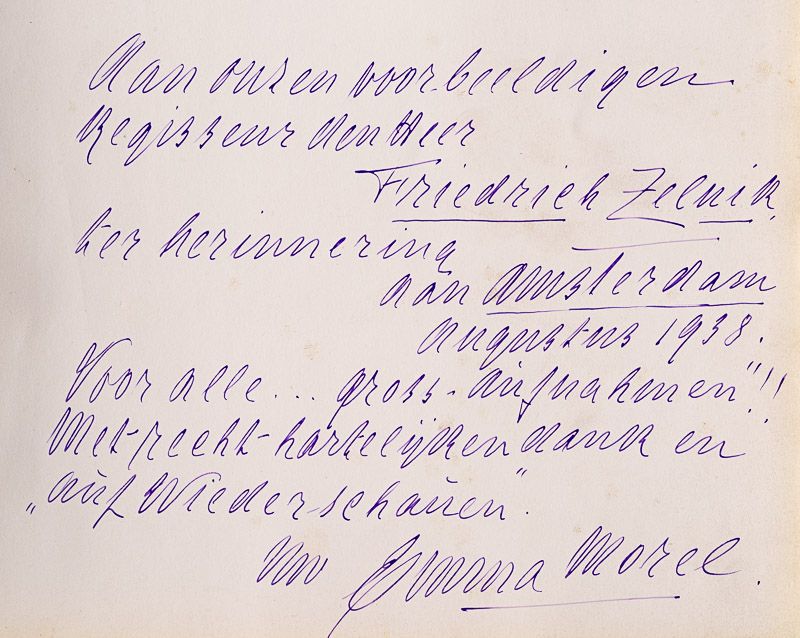 Aan onzen voorbeeldigen
Regisseur den Heer
Friedrich Zelnik.
ter herinnering
aan Amsterdam
Augustus 1938.
Voor alle ... gross-aufnahmen"!!
Met recht hartelijken dank en
„auf Wiederschauen".
Emma Morel.